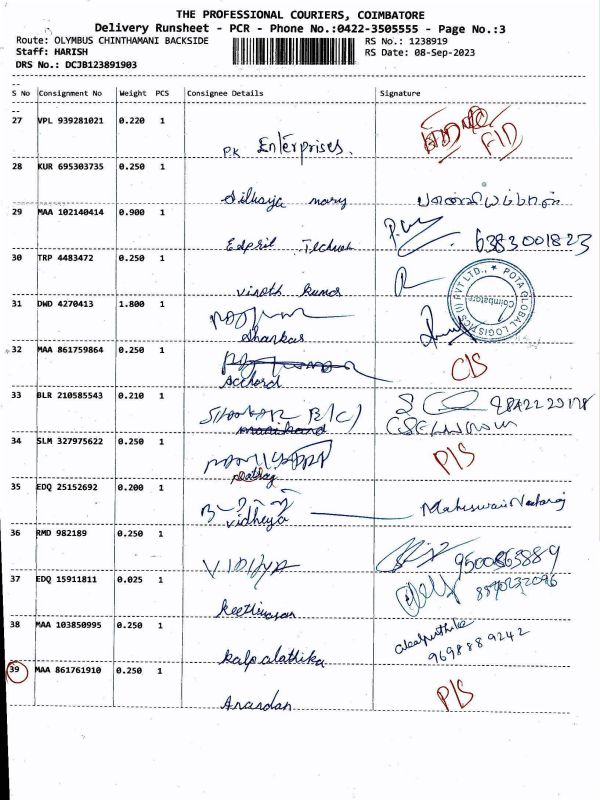 THE PROFESSIONAL COURIERS, COIMBATORE
Delivery Runsheet - PCR - Phone No.:0422-3505555 - Page No.:3
Route: OLYMBUS CHINTHAMANI BACKSIDE RS No.: 1238919
Staff: HARISH RS Date: 08-Sep-2023
DRS No.: DCJB123891903
S No Consignment No Weight PCS Consignee Details Signature
27 VPL 939281021 0.220 1
P.K Enterprises. FID
28 KUR 695303735 0.250 1
mary
29 MAA 102140414 0.900 1
6383001823
30 TRP 4483472 0.250 1
vinoth kumar
POTA GLOBAL LOGISTICS (I) PVT LTD., ★ Coimbatore
31 DWD 4270413 1.800 1
Shankar
32 MAA 861759864 0.250 1
Accord
33 BLR 210585543 0.210 1
B/C)
34 SLM 327975622 0.250 1
P/S
35 EDQ 25152692 0.200 1
vidheya Maheswari
36 RMD 982189 0.250 1
VIDHYA 9500863889
37 EDQ 15911811 0.025 1
8870232096
keethivasan
38 MAA 103850995 0.250 1
9698889242
kalpalathika
39 MAA 861761910 0.250 1
P/S
Anandan